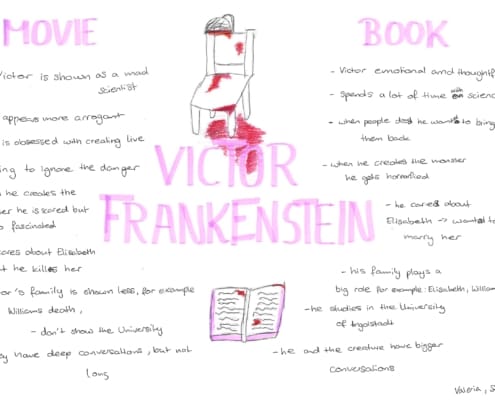 MOVIE
Victor is shown as a mad
scientist
appears more arrogant
is obsessed with creating live
to ignore the danger
he creates the
he is scared but
fascinated
cares about Elisabeth
he killes her
family is shown less, for example
Williams death,
- don't show the University
have deep conversations, but not
long
VICTOR
FRANKENSTEIN
BOOK
- Victor emotional and
- Spends a lot of time
- when people he to bring
them back
- when he creates the monster
he gets horrorfied
- he cares about
Elisabeth → to
marry her
- his family plays a
big role for example: Elisabeth,
- he studies in the University
of Ingolstadt
- he and the creature have bigger
conversations
Valeria,